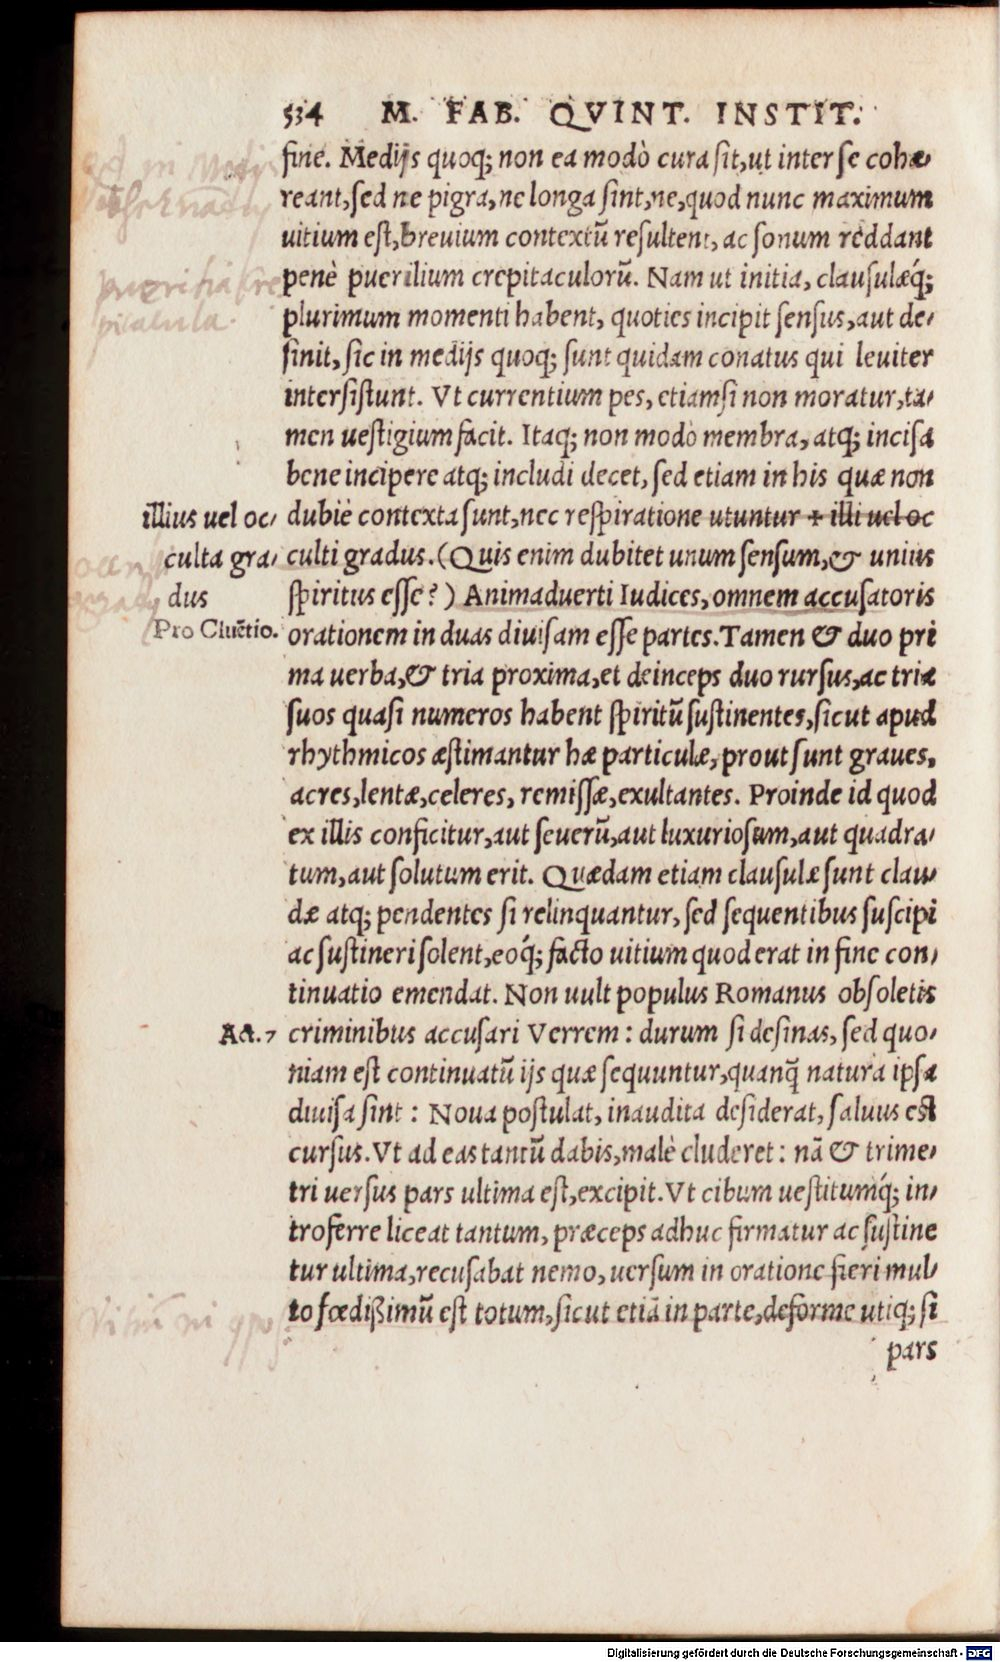 534 M. FAB. QVINT. INSTIT.
fine. Medijs quoq; non ea modò cura sit, ut inter se cohæ-
reant, sed ne pigra, ne longa sint, ne, quod nunc maximum
uitium est, breuium contextū resultent, ac sonum reddant
penè puerilium crepitaculorū. Nam ut initia, clausulæq́;
plurimum momenti habent, quoties incipit sensus, aut de-
sinit, sic in medijs quoq; sunt quidam conatus qui leuiter
intersistunt. Vt currentium pes, etiamsi non moratur, ta-
men uestigium facit. Itaq; non modo membra, atq; incisa
bene incipere atq; includi decet, sed etiam in his quæ non
illius uel oc- dubiè contexta sunt, nec respiratione utuntur + illi uel oc
culta gra- culti gradus. (Quis enim dubitet unum sensum, & unius
dus spiritus esse?) Animaduerti Iudices, omnem accusatoris
Pro Cluētio. orationem in duas diuisam esse partes. Tamen & duo pri
ma uerba, & tria proxima, et deinceps duo rursus, ac tria
suos quasi numeros habent spiritū sustinentes, sicut apud
rhythmicos æstimantur hæ particulæ, prout sunt graues,
acres, lentæ, celeres, remissæ, exultantes. Proinde id quod
ex illis conficitur, aut seuerū, aut luxuriosum, aut quadra-
tum, aut solutum erit. Quædam etiam clausulæ sunt clau-
dæ atq; pendentes si relinquantur, sed sequentibus suscipi
ac sustineri solent, eoq́; facto uitium quod erat in fine con-
tinuatio emendat. Non uult populus Romanus obsoletis
AA. 7 criminibus accusari Verrem: durum si desinas, sed quo-
niam est continuatū ijs quæ sequuntur, quanq̄ natura ipsa
diuisa sint: Noua postulat, inaudita desiderat, saluus est
cursus. Vt ad eas tantū dabis, malè cluderet: nā & trime-
tri uersus pars ultima est, excipit. Vt cibum uestitumq́; in-
troferre liceat tantum, præceps adhuc firmatur ac sustine
tur ultima, recusabat nemo, uersum in oratione fieri mul-
to fœdißimū est totum, sicut etiā in parte, deforme utiq; si
pars
Digitalisierung gefördert durch die Deutsche Forschungsgemeinschaft - DFG